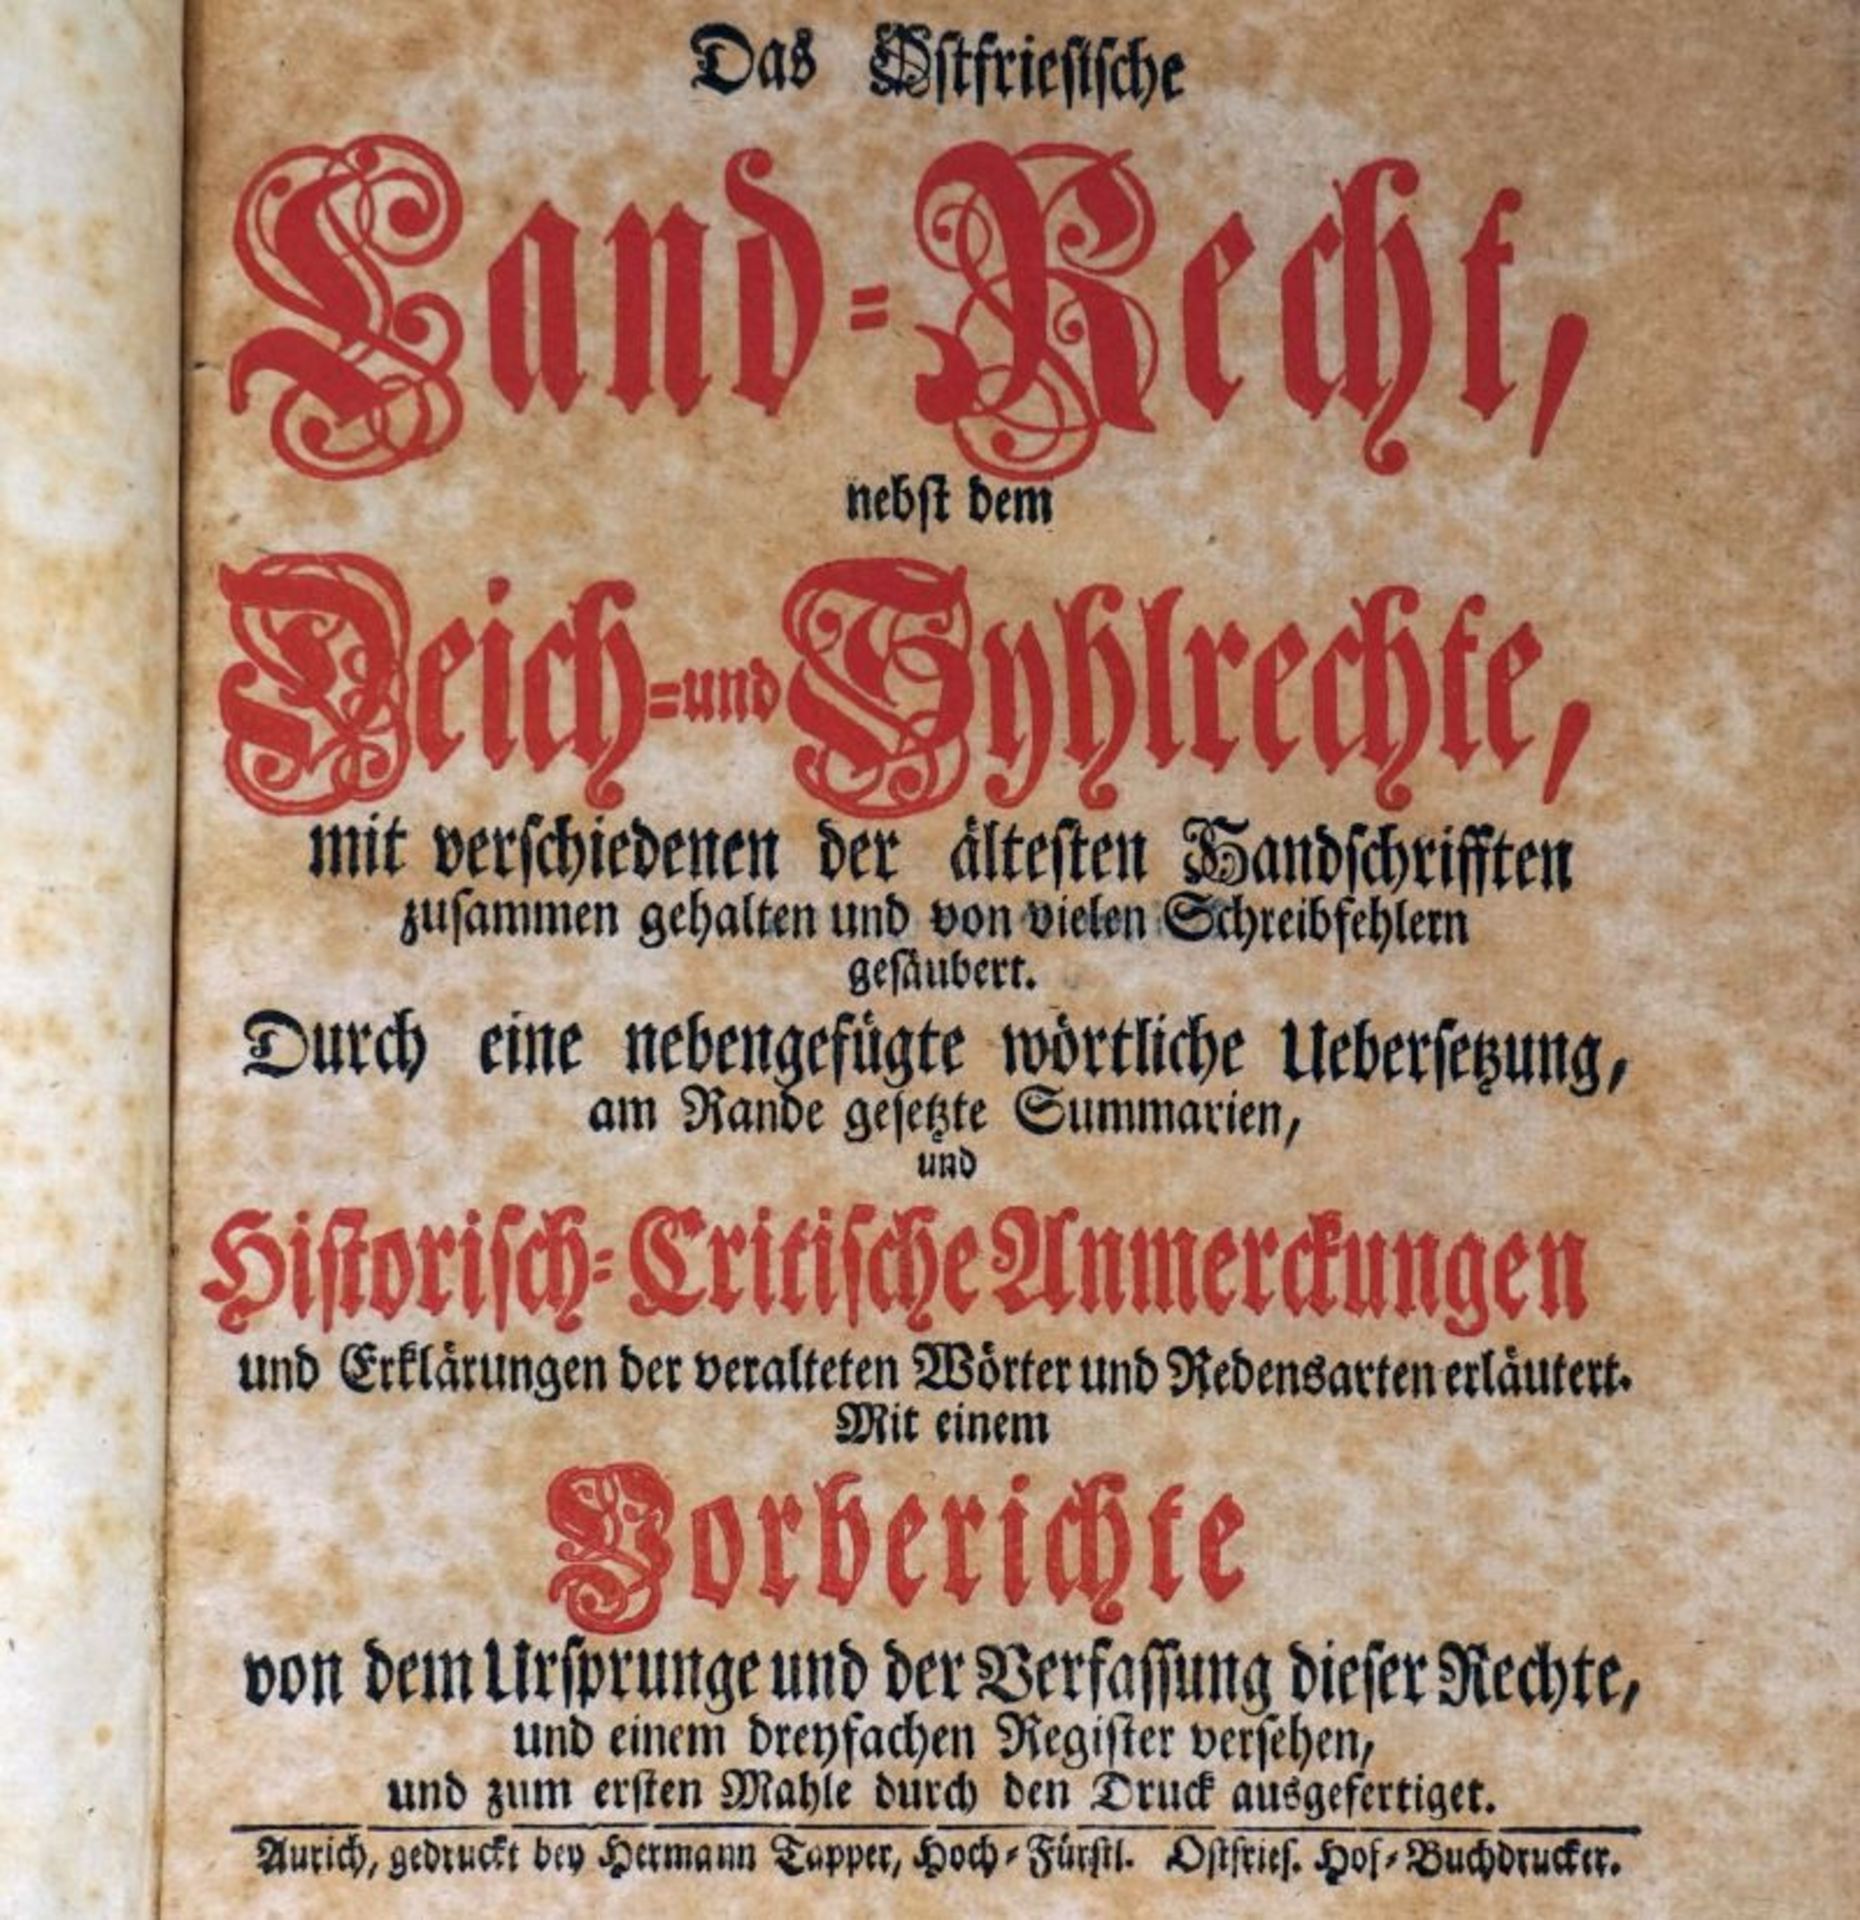 Das Ostfriesische
Land-Recht,
nebst dem
Deich-und Syhlrechte,
mit verschiedenen der ältesten Handschrifften
zusammen gehalten und von vielen Schreibfehlern
gesäubert.
Durch eine nebengefügte wörtliche Uebersetzung,
am Rande gesetzte Summarien,
und
Historisch-Critische Anmerckungen
und Erklärungen der veralteten Wörter und Redensarten erläutert.
Mit einem
Vorberichte
von dem Ursprunge und der Verfassung dieser Rechte,
und einem dreyfachen Register versehen,
und zum ersten Mahle durch den Druck ausgefertiget.
Aurich, gedruckt bey Hermann Tapper, Hoch-Fürstl. Ostfries. Hof-Buchdrucker.